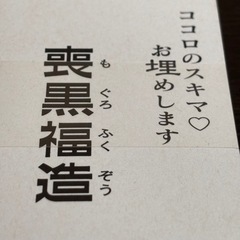 ココロのスキマ♡
お埋めします
喪黒福造
もぐろふくぞう